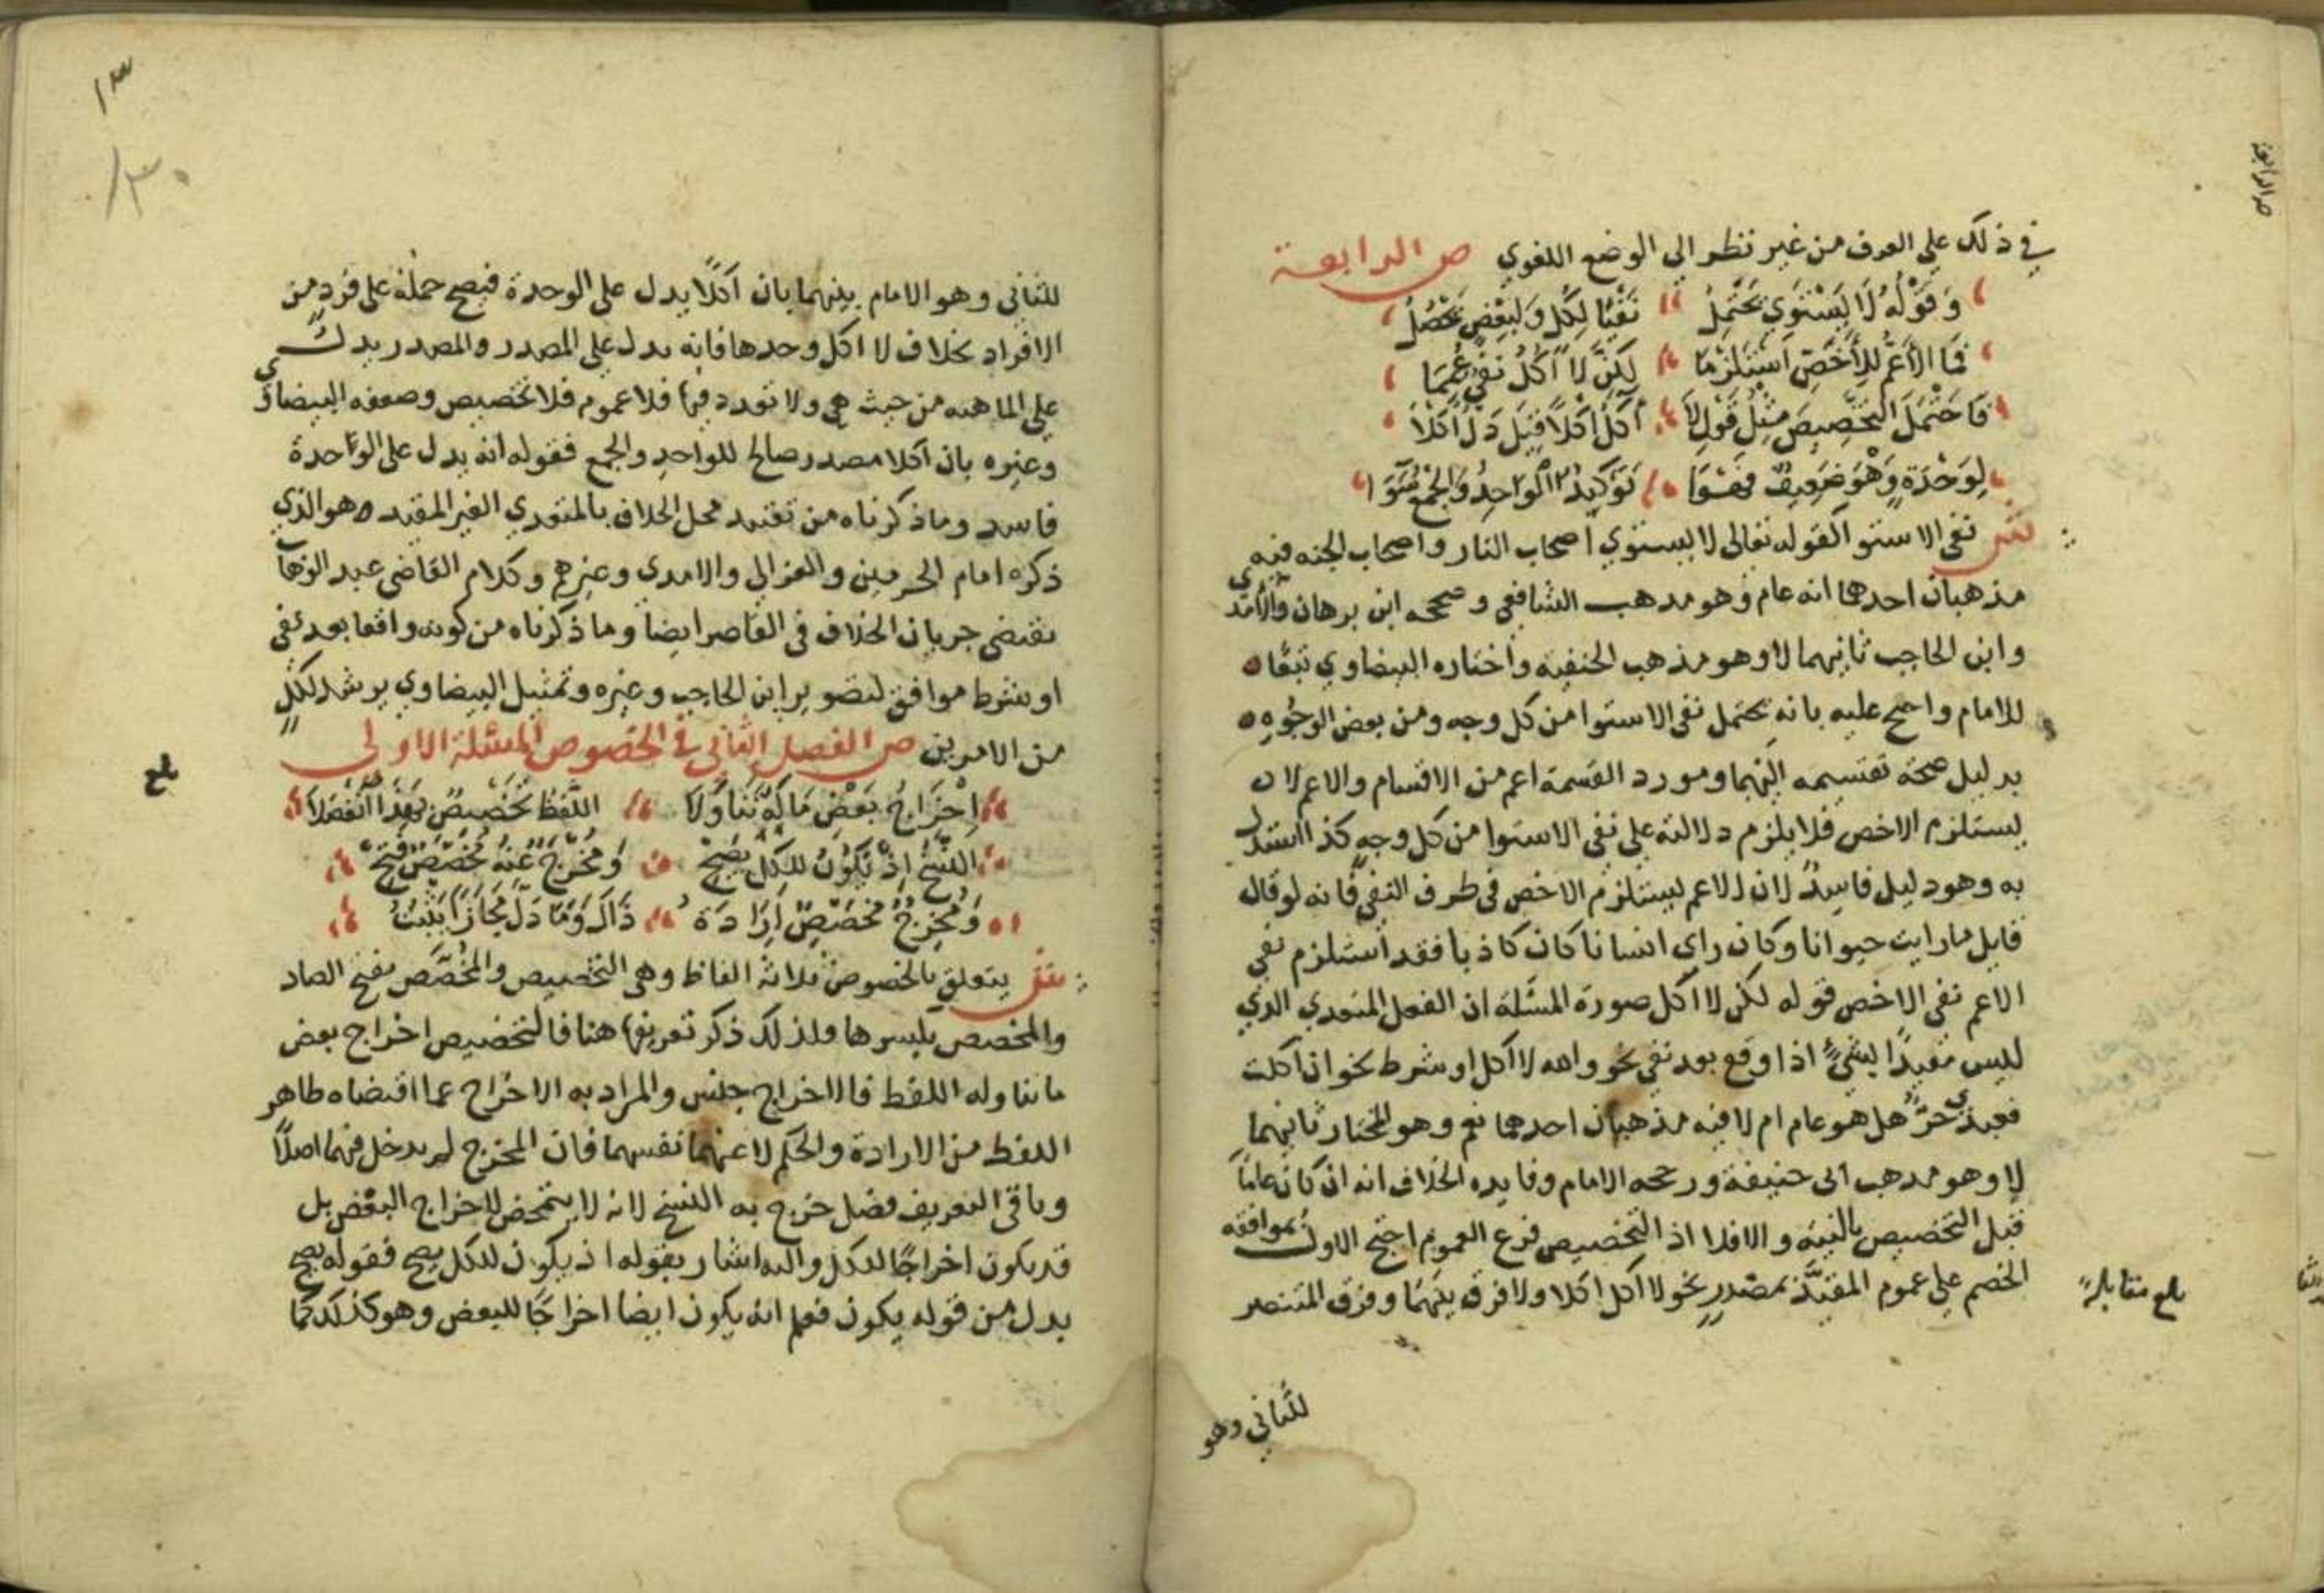 في ذلك علي العرف من غير نظر الي الوضع اللغوي ص الرابعة
وَقَوْلُهُ لَا يَسْتَوِي يَحْتَمِلُ نَفْيًا لِكُلٍّ وَلِبَعْضٍ يَحْصُلُ
فَمَا الأَعَمُّ لِلْأَخَصِّ اسْتَلْزَمَا لَكِنَّ لَا آكُلُ نَفْيٌ عُمِّمَا
فَاحْتَمَلَ التَّخْصِيصَ مِثْلُ قَوْلِ لَا آكُلُ أَكْلًا قِيلَ دَلَّ أَكْلًا
لِوَحْدَةٍ وَهْوَ ضَعِيفٌ فَهْوَا تَوْكِيدُ الْوَاحِدُ وَالْجَمْعُ سَوَا
نفي الاستوا كقوله تعالى لا يستوي اصحاب النار واصحاب الجنه فيه
مذهبان احدها انه عام وهو مدهب الشافعي وصححه ابن برهان والامدي
وابن الحاجب ثانيهما لا وهو مذهب الحنفيه واختاره البيضاوي تبعًا
للامام واحتج عليه بانه يحتمل نفي الاستوا من كل وجه ومن بعض الوجوه
بدليل صحة تقسيمه اليهما ومورد القسمة اعم من الاقسام والاعم لا
يستلزم الاخص فلا يلزم دلالته علي نفي الاستوا من كل وجه كذا استدل
به وهو دليل فاسد لان الاعم يستلزم الاخص في طرف النفي فانه لو قال
قايل ما رايت حيوانا وكان راى انسانا كان كاذبا فقد استلزم نفي
الاعم نفي الاخص قوله لكن لا اكل صورة المسئلة ان الفعل المتعدي الذي
ليس مقيدًا بشيء اذا وقع بعد نفي نحو والله لا اكل او شرط نحو ان اكلت
فعبدي حرٌّ هل هو عام ام لا فيه مذهبان احدهما نعم وهو المختار ثانيهما
لا وهو مدهب ابي حنيفة ورجحه الامام وفايده الخلاف انه ان كان عامًا
قبل التخصيص بالنيه والا فلا اذ التخصيص فرع العموم احتج الاول بموافقة
الخصم علي عموم المقيد بمصدر نحو لا آكل اكلا ولا فرق بينهما وفرق المنتصر
بلغ مقابلة
للثاني وهو
١٣
١٣٠
للثاني وهو الامام بينهما بان اكلًا يدل على الوحدة فيصح حمله على فرد من
الافراد بخلاف لا اكل وحدها فانه يدل علي المصدر والمصدر يدل
علي الماهيه من حيث هي ولا تعدد فيها فلا عموم فلا تخصيص وضعفه البيضاوي
وغيره بان اكلا مصدر صالح للواحد والجمع فقوله انه يدل على الواحدة
فاسد وما ذكرناه من تقييد محل الخلاف بالمتعدي الغير المقيد هو الذي
ذكره امام الحرمين والغزالي والامدي وغيرهم وكلام القاضي عبد الوهاب
يقتضي جريان الخلاف في القاصر ايضا وما ذكرناه من كونه واقعا بعد نفي
او شرط موافق لتصوير ابن الحاجب وغيره وتمثيل البيضاوي يرشد لكل
من الامرين ص الفصل الثاني في الخصوص المسئلة الاولى
إِخْرَاجُ بَعْضِ مَا لَهُ تَنَاوَلَا اللَّفْظُ تَخْصِيصٌ بِهَذَا انْفَصَلَا
النَّسْخُ إِذْ يَكُونُ لِلْكُلِّ يَصِحْ وَمُخْرَجٌ عَنْهُ مُخَصَّصٌ فُتِحْ
وَمُخْرِجٌ مُخَصِّصٌ إِرَادَةُ ذَاكَ وَمَا دَلَّ مَجَازًا يَثْبُتُ
يتعلق بالخصوص ثلاثة الفاظ وهي التخصيص والمخصَّص بفتح الصاد
والمخصص بكسرها ولذلك ذكر تعريفها هنا فالتخصيص اخراج بعض
ما تناوله اللفظ فالاخراج جنس والمراد به الاخراج عما اقتضاه ظاهر
اللفظ من الارادة والحكم لا عنهما نفسهما فان المخرج لم يدخل فيهما اصلًا
وباقي التعريف فصل خرج به النسخ لانه لا يتمحض لاخراج البعض بل
قد يكون اخراجًا للكل واليه اشار بقوله اذ يكون للكل يصح فقوله يصح
بدل من قوله يكون فعلم انه يكون ايضا اخراجًا للبعض وهو كذلك كما
بلغ